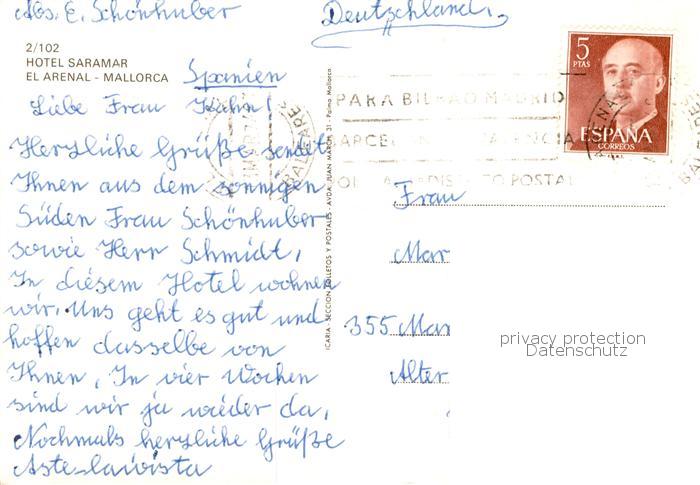 Abs. E. Schönhuber
Deutschland,
2/102
HOTEL SARAMAR
EL ARENAL - MALLORCA
Spanien
Liebe Frau Kühn!
Herzliche Grüße sendet
Ihnen aus dem sonnigen
Süden Frau Schönhuber
sowie Herr Schmidt,
In diesem Hotel wohnen
wir. Uns geht es gut und
hoffen dasselbe von
Ihnen, In vier Wochen
sind wir ja wieder da,
Nochmals herzliche Grüße
Aste lawista
ICARIA - SECCION FOLLETOS Y POSTALES - AVDA. JUAN MARCH, 31 - Palma Mallorca
5
PTAS
ESPAÑA
CORREOS
PARA BILBAO MADRID
BALEARES
Frau
Mar
355 Mar
Alter
privacy protection
Datenschutz